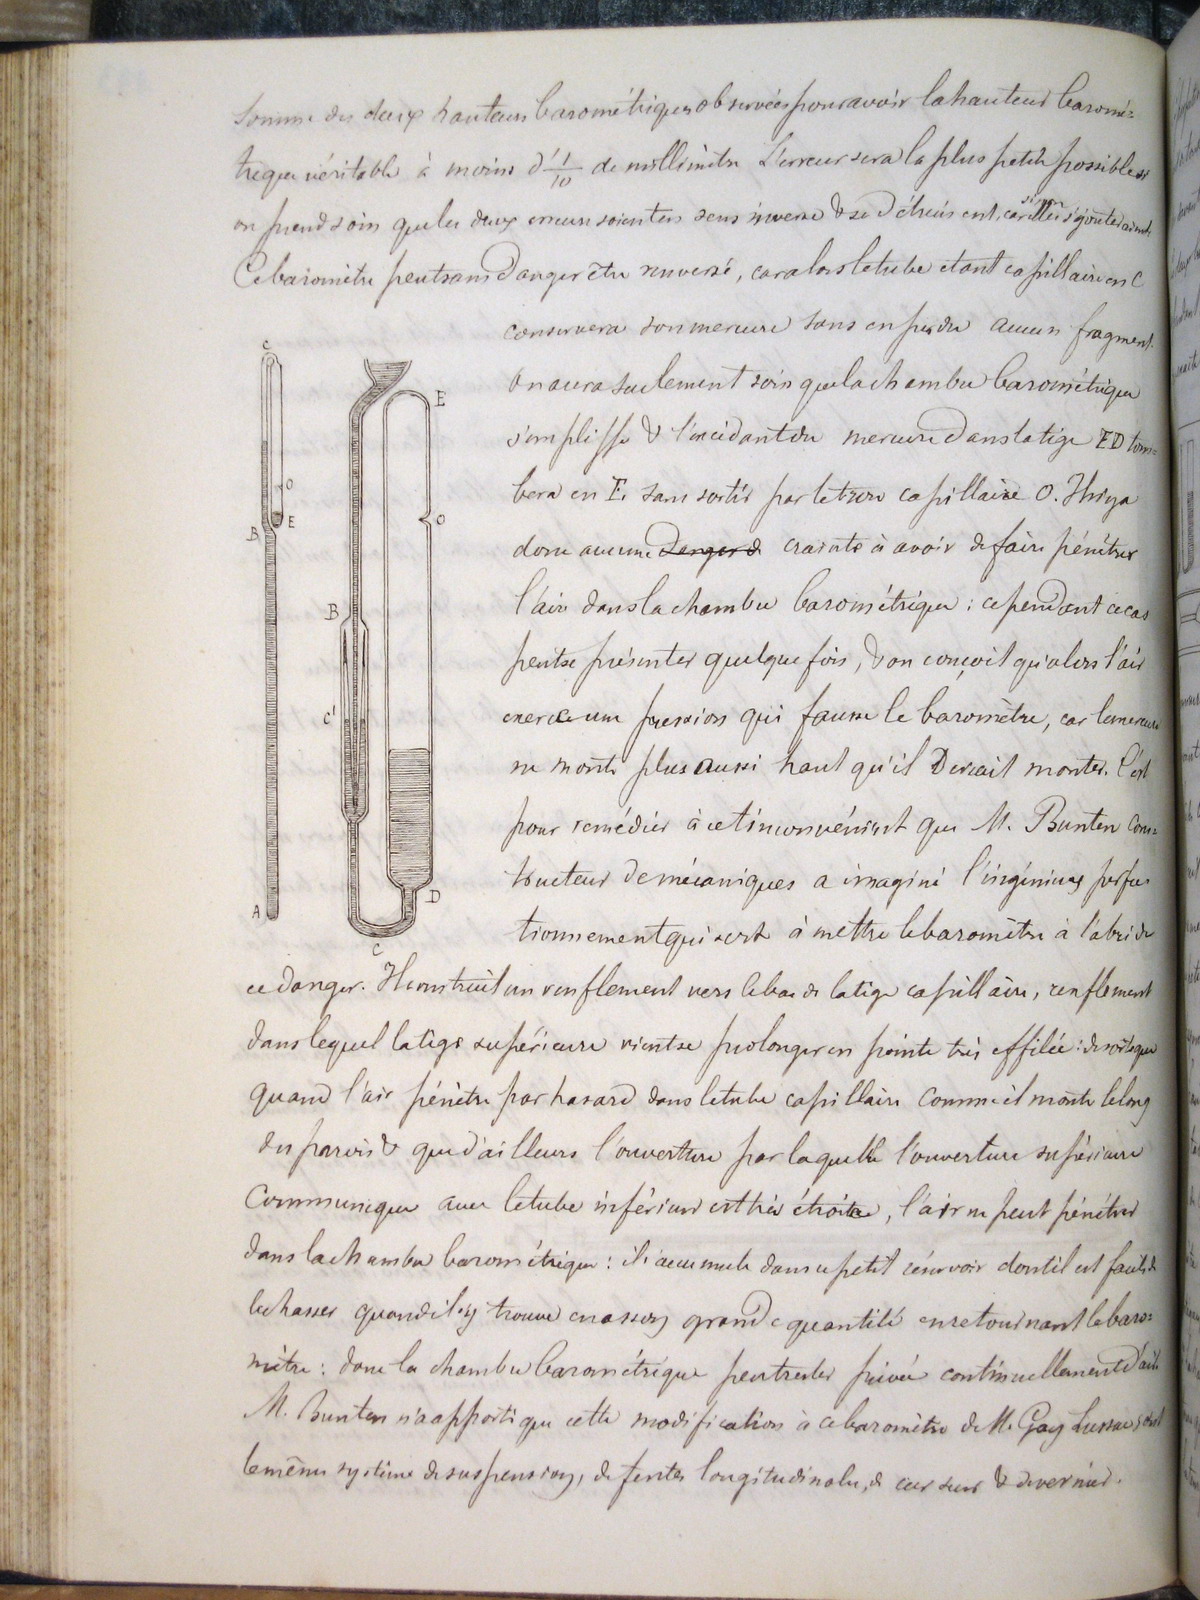 Somme des deux hauteurs barométriques observées pour avoir la hauteur baromé-
trique véritable à moins d'1/10 de millimètre L'erreur sera la plus petite possible si
on prend soin que les deux erreurs soient en sens inverse & se détruisent, car sinon elles s'ajouteraient.
Ce baromètre peut sans danger être renversé, car alors le tube étant capillaire en C
conservera son mercure sans en perdre aucun fragment.
On aura seulement soin que la chambre barométrique
s'emplisse & l'excédant du mercure dans la tige ED tom-
bera en E, sans sortir par le trou capillaire O. Il n'y a
donc aucune danger de crainte à avoir de faire pénétrer
l'air dans la chambre barométrique : cependant ce cas
peut se présenter quelque fois, & on conçoit qu'alors l'air
exerce une pression qui fausse le baromètre, car le mercure
ne monte plus aussi haut qu'il devrait monter. C'est
pour remédier à cet inconvénient que M. Bunten cons-
tructeur de mécaniques a imaginé l'ingénieux perfec
tionnement qui sert à mettre le baromètre à l'abri de
ce danger. Il construit un renflement vers le bas de la tige capillaire, renflement
dans lequel la tige supérieure vient se prolonger en pointe très effilée : de sorte que
quand l'air pénètre par hasard dans le tube capillaire comme il monte le long
des parois & que d'ailleurs l'ouverture par laquelle l'ouverture supérieure
communique avec le tube inférieur est très étroite, l'air ne peut pénétrer
dans la chambre barométrique : il s'accumule dans ce petit réservoir dont il est facile de
le chasser quand il s'y trouve en assez grande quantité en retournant le baro-
mètre : donc la chambre barométrique peut rester privée continuellement d'air
M. Bunten n'a apporté que cette modification à ce baromètre de M. Gay Lussac ; c'est
le même système de suspension, de fentes longitudinales, de curseur & de vernier.
C
O
B E
A
E
O
B
C'
D
C